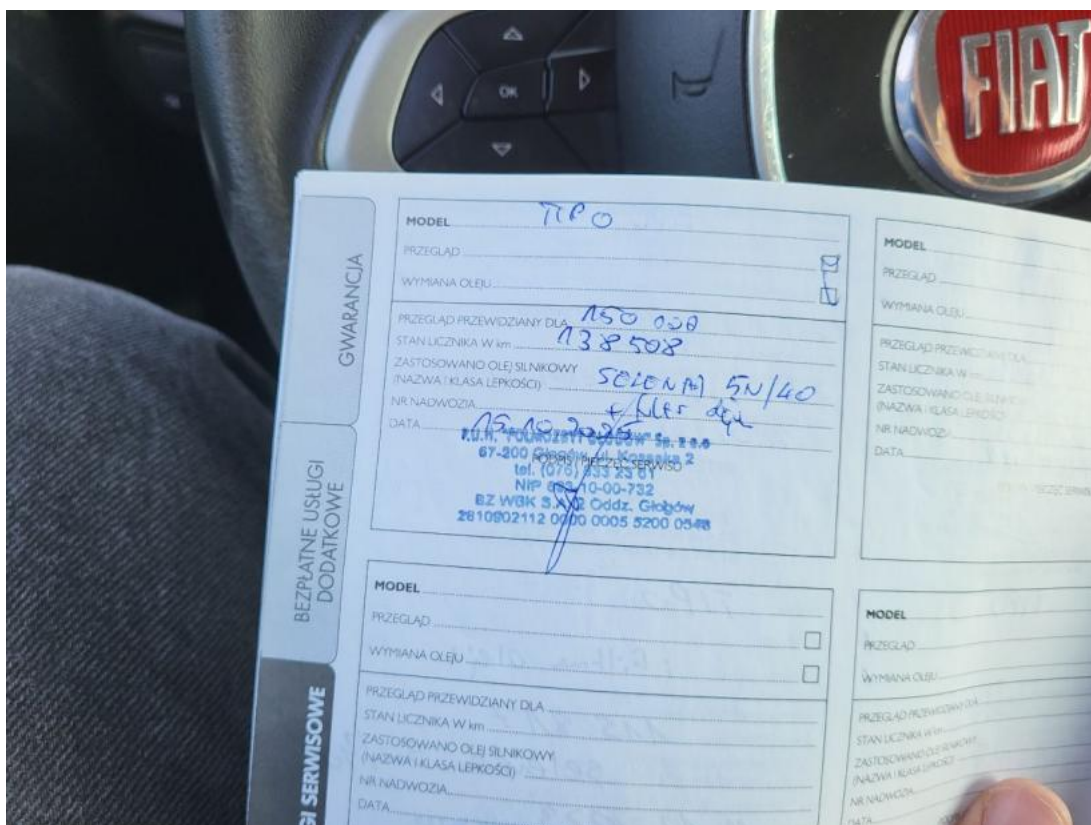 OK
FIAT
GWARANCJA
BEZPŁATNE USŁUGI
DODATKOWE
GI SERWISOWE
MODEL TIPO
PRZEGLĄD
WYMIANA OLEJU
PRZEGLĄD PRZEWIDZIANY DLA 150 000
STAN LICZNIKA W km 138508
ZASTOSOWANO OLEJ SILNIKOWY
(NAZWA I KLASA LEPKOŚCI) SELENIA 5W/40
NR NADWOZIA + filtr
DATA 15.10.2025
67-200 Głogów, ul. 2
PODPIS I PIECZĘĆ SERWISO
tel. (076) 833 23 61
NIP 10-00-732
BZ WBK S.A. Oddz. Głogów
2810902112 0000 0005 5200 0548
MODEL
PRZEGLĄD
WYMIANA OLEJU
PRZEGLĄD PRZEWIDZIANY DLA
STAN LICZNIKA W km
ZASTOSOWANO OLEJ SILNIKOWY
(NAZWA I KLASA LEPKOŚCI)
NR NADWOZIA
DATA
MODEL
PRZEGLĄD
WYMIANA OLEJU
PRZEGLĄD PRZEWIDZIANY DLA
STAN LICZNIKA W km
ZASTOSOWANO OLEJ SILNIKOWY
(NAZWA I KLASA LEPKOŚCI)
NR NADWOZI
DATA
MODEL
PRZEGLĄD
WYMIANA OLEJU
PRZEGLĄD PRZEWIDZIANY DLA
STAN LICZNIKA W km
ZASTOSOWANO OLEJ SILNIKOWY
(NAZWA I KLASA LEPKOŚCI)
NR NADWOZIA
DATA